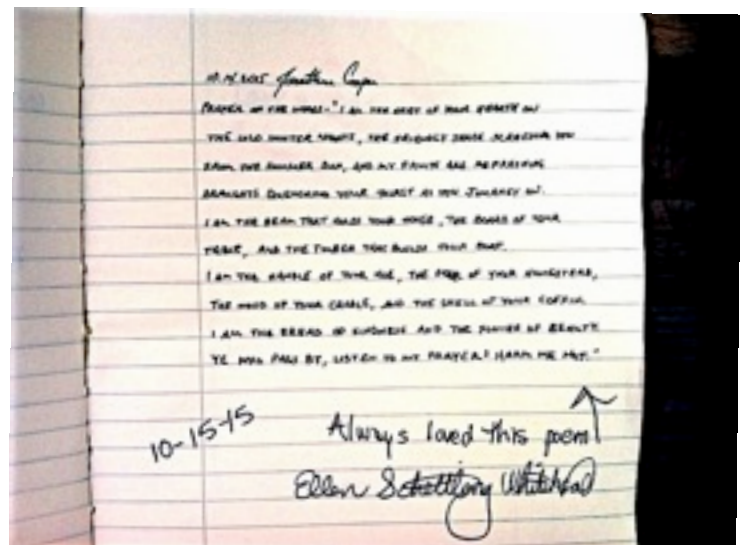 10.14.2015 Jonathan Cooper
PRAYER OF THE WOODS - "I AM THE HEAT OF YOUR HEARTH ON
THE COLD WINTER NIGHTS, THE FRIENDLY SHADE SCREENING YOU
FROM THE SUMMER SUN, AND MY FRUITS ARE REFRESHING
DRAUGHTS QUENCHING YOUR THIRST AS YOU JOURNEY ON.
I AM THE BEAM THAT HOLDS YOUR HOUSE, THE BOARD OF YOUR
TABLE, AND THE TIMBER THAT BUILDS YOUR BOAT.
I AM THE HANDLE OF YOUR HOE, THE DOOR OF YOUR HOMESTEAD,
THE WOOD OF YOUR CRADLE, AND THE SHELL OF YOUR COFFIN.
I AM THE BREAD OF KINDNESS AND THE FLOWER OF BEAUTY.
YE WHO PASS BY, LISTEN TO MY PRAYER: HARM ME NOT."
10-15-15
Always loved this poem
Ellen Whitehead